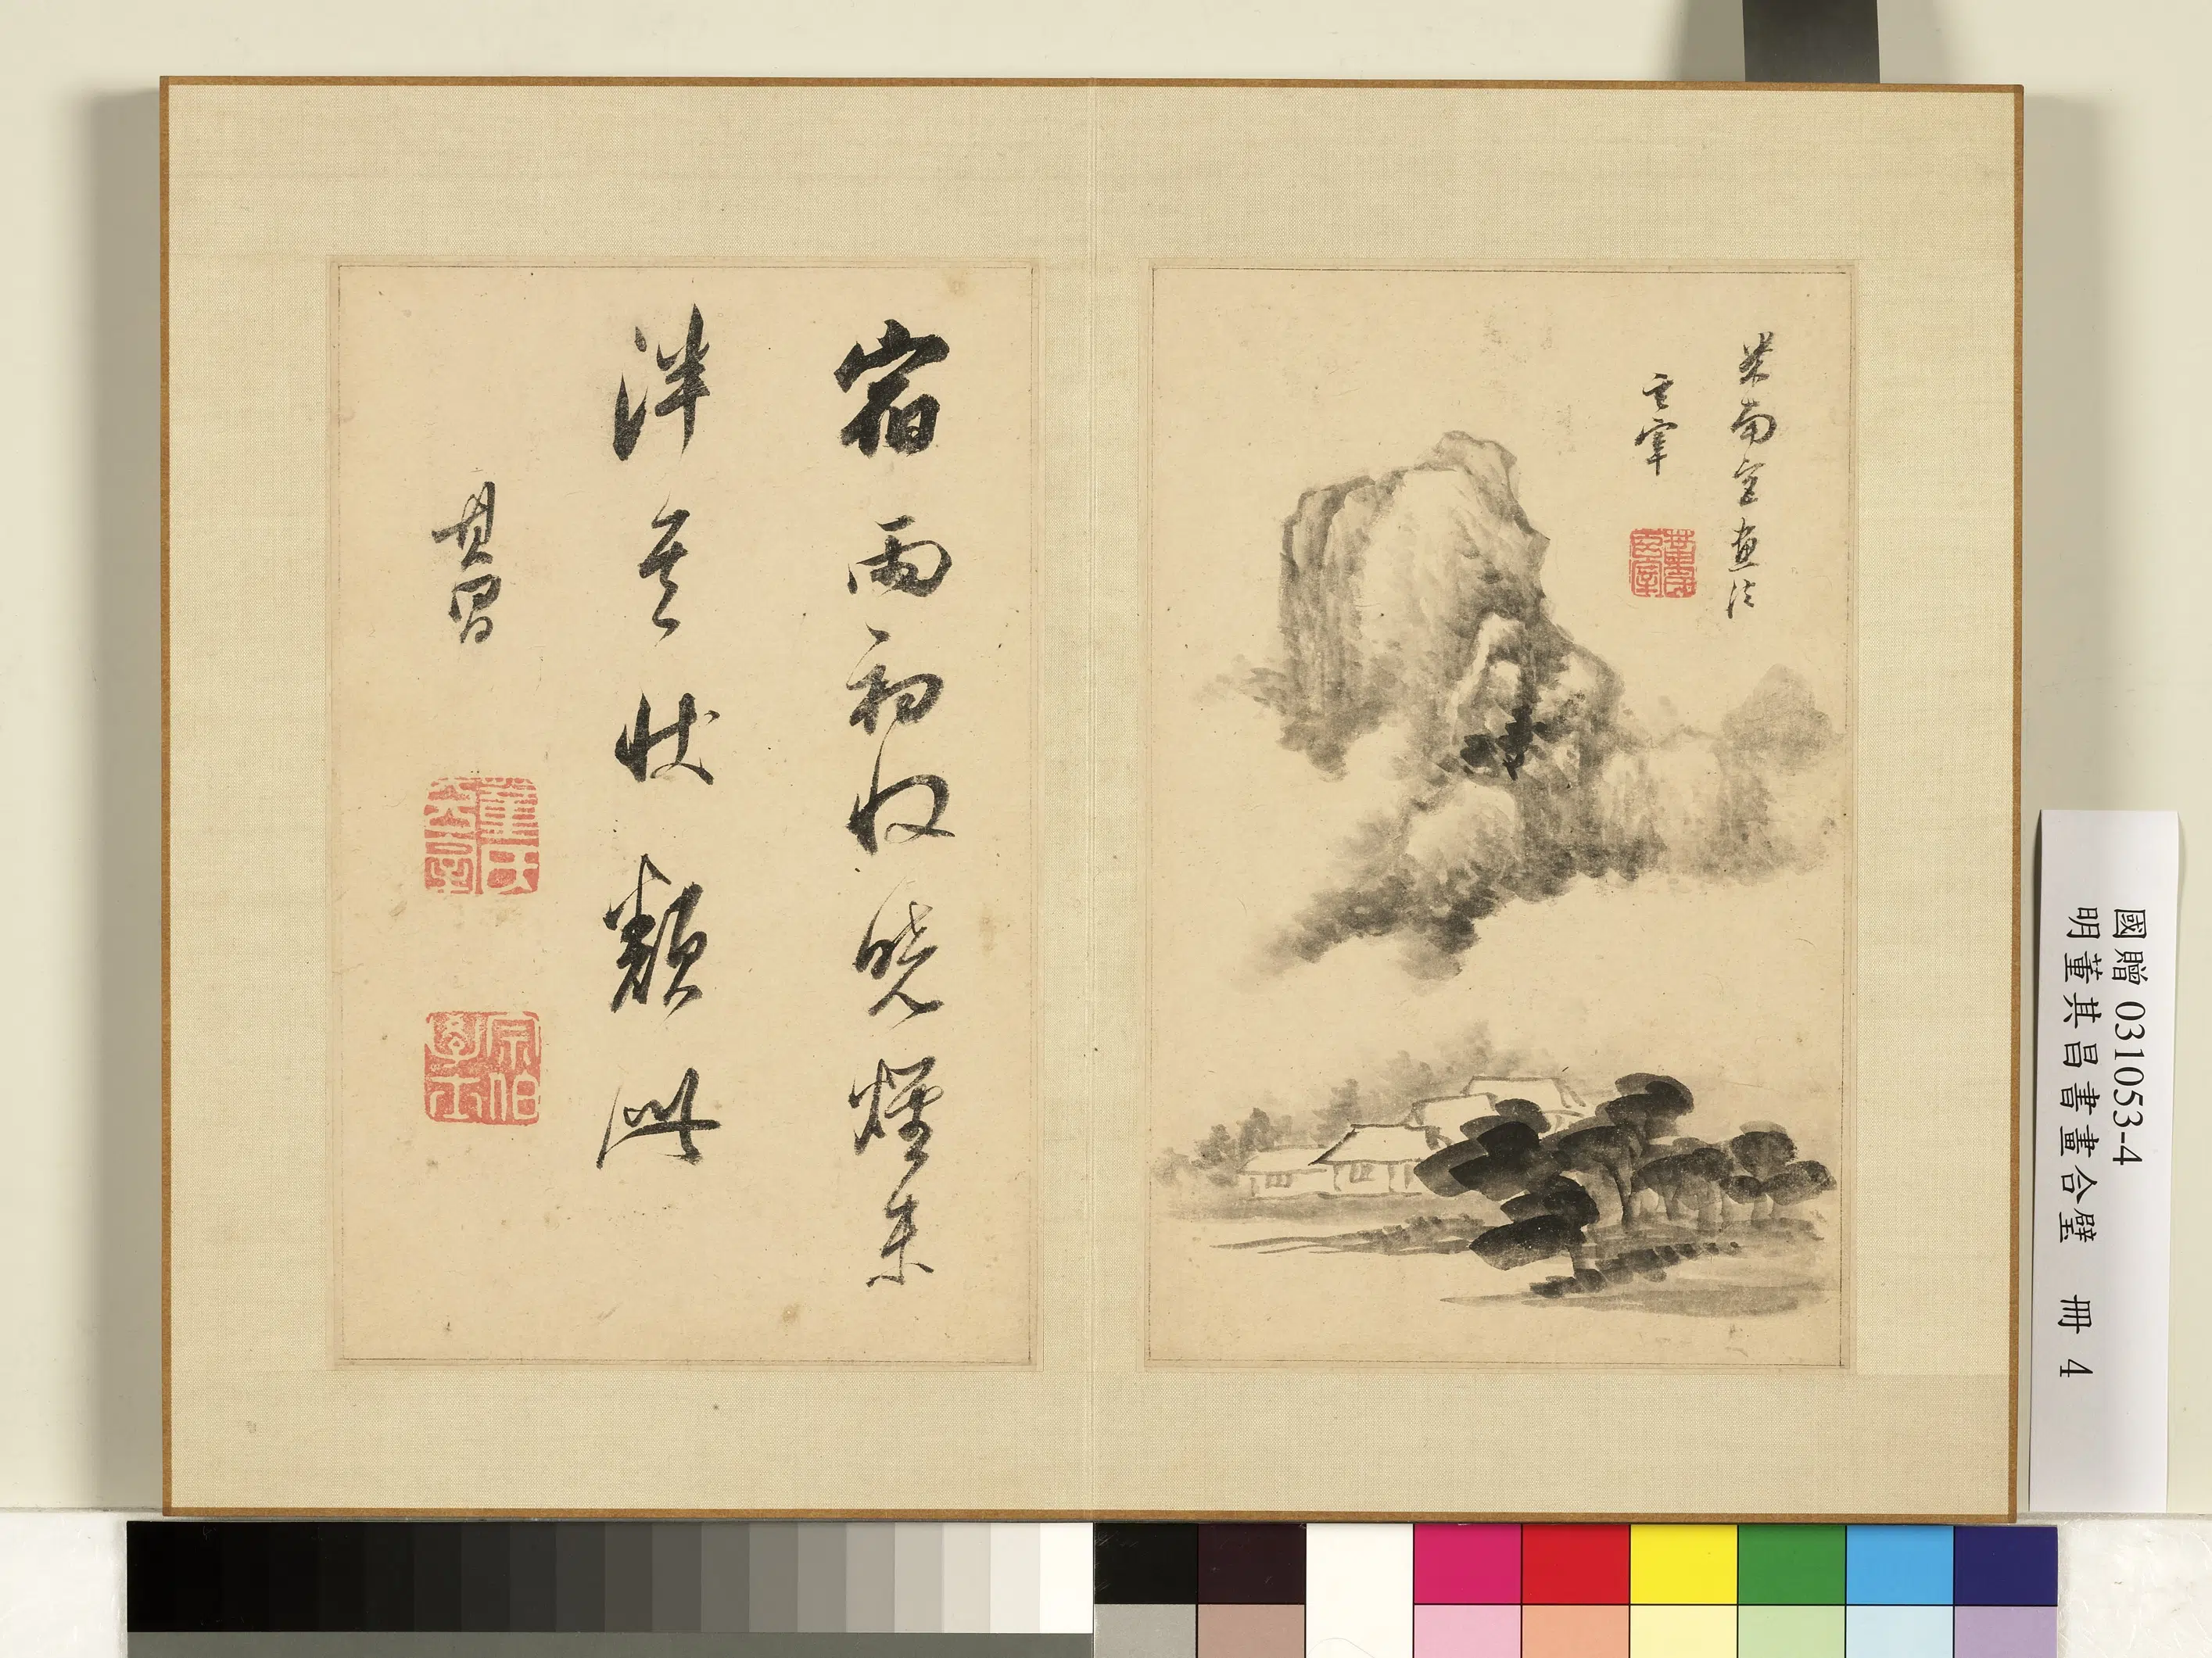 國贈 031053-4
明董其昌書畫合璧 冊 4
米南宮畫法
玄宰
宿雨初收曉煙未
泮其狀類此
其昌
宗伯學士